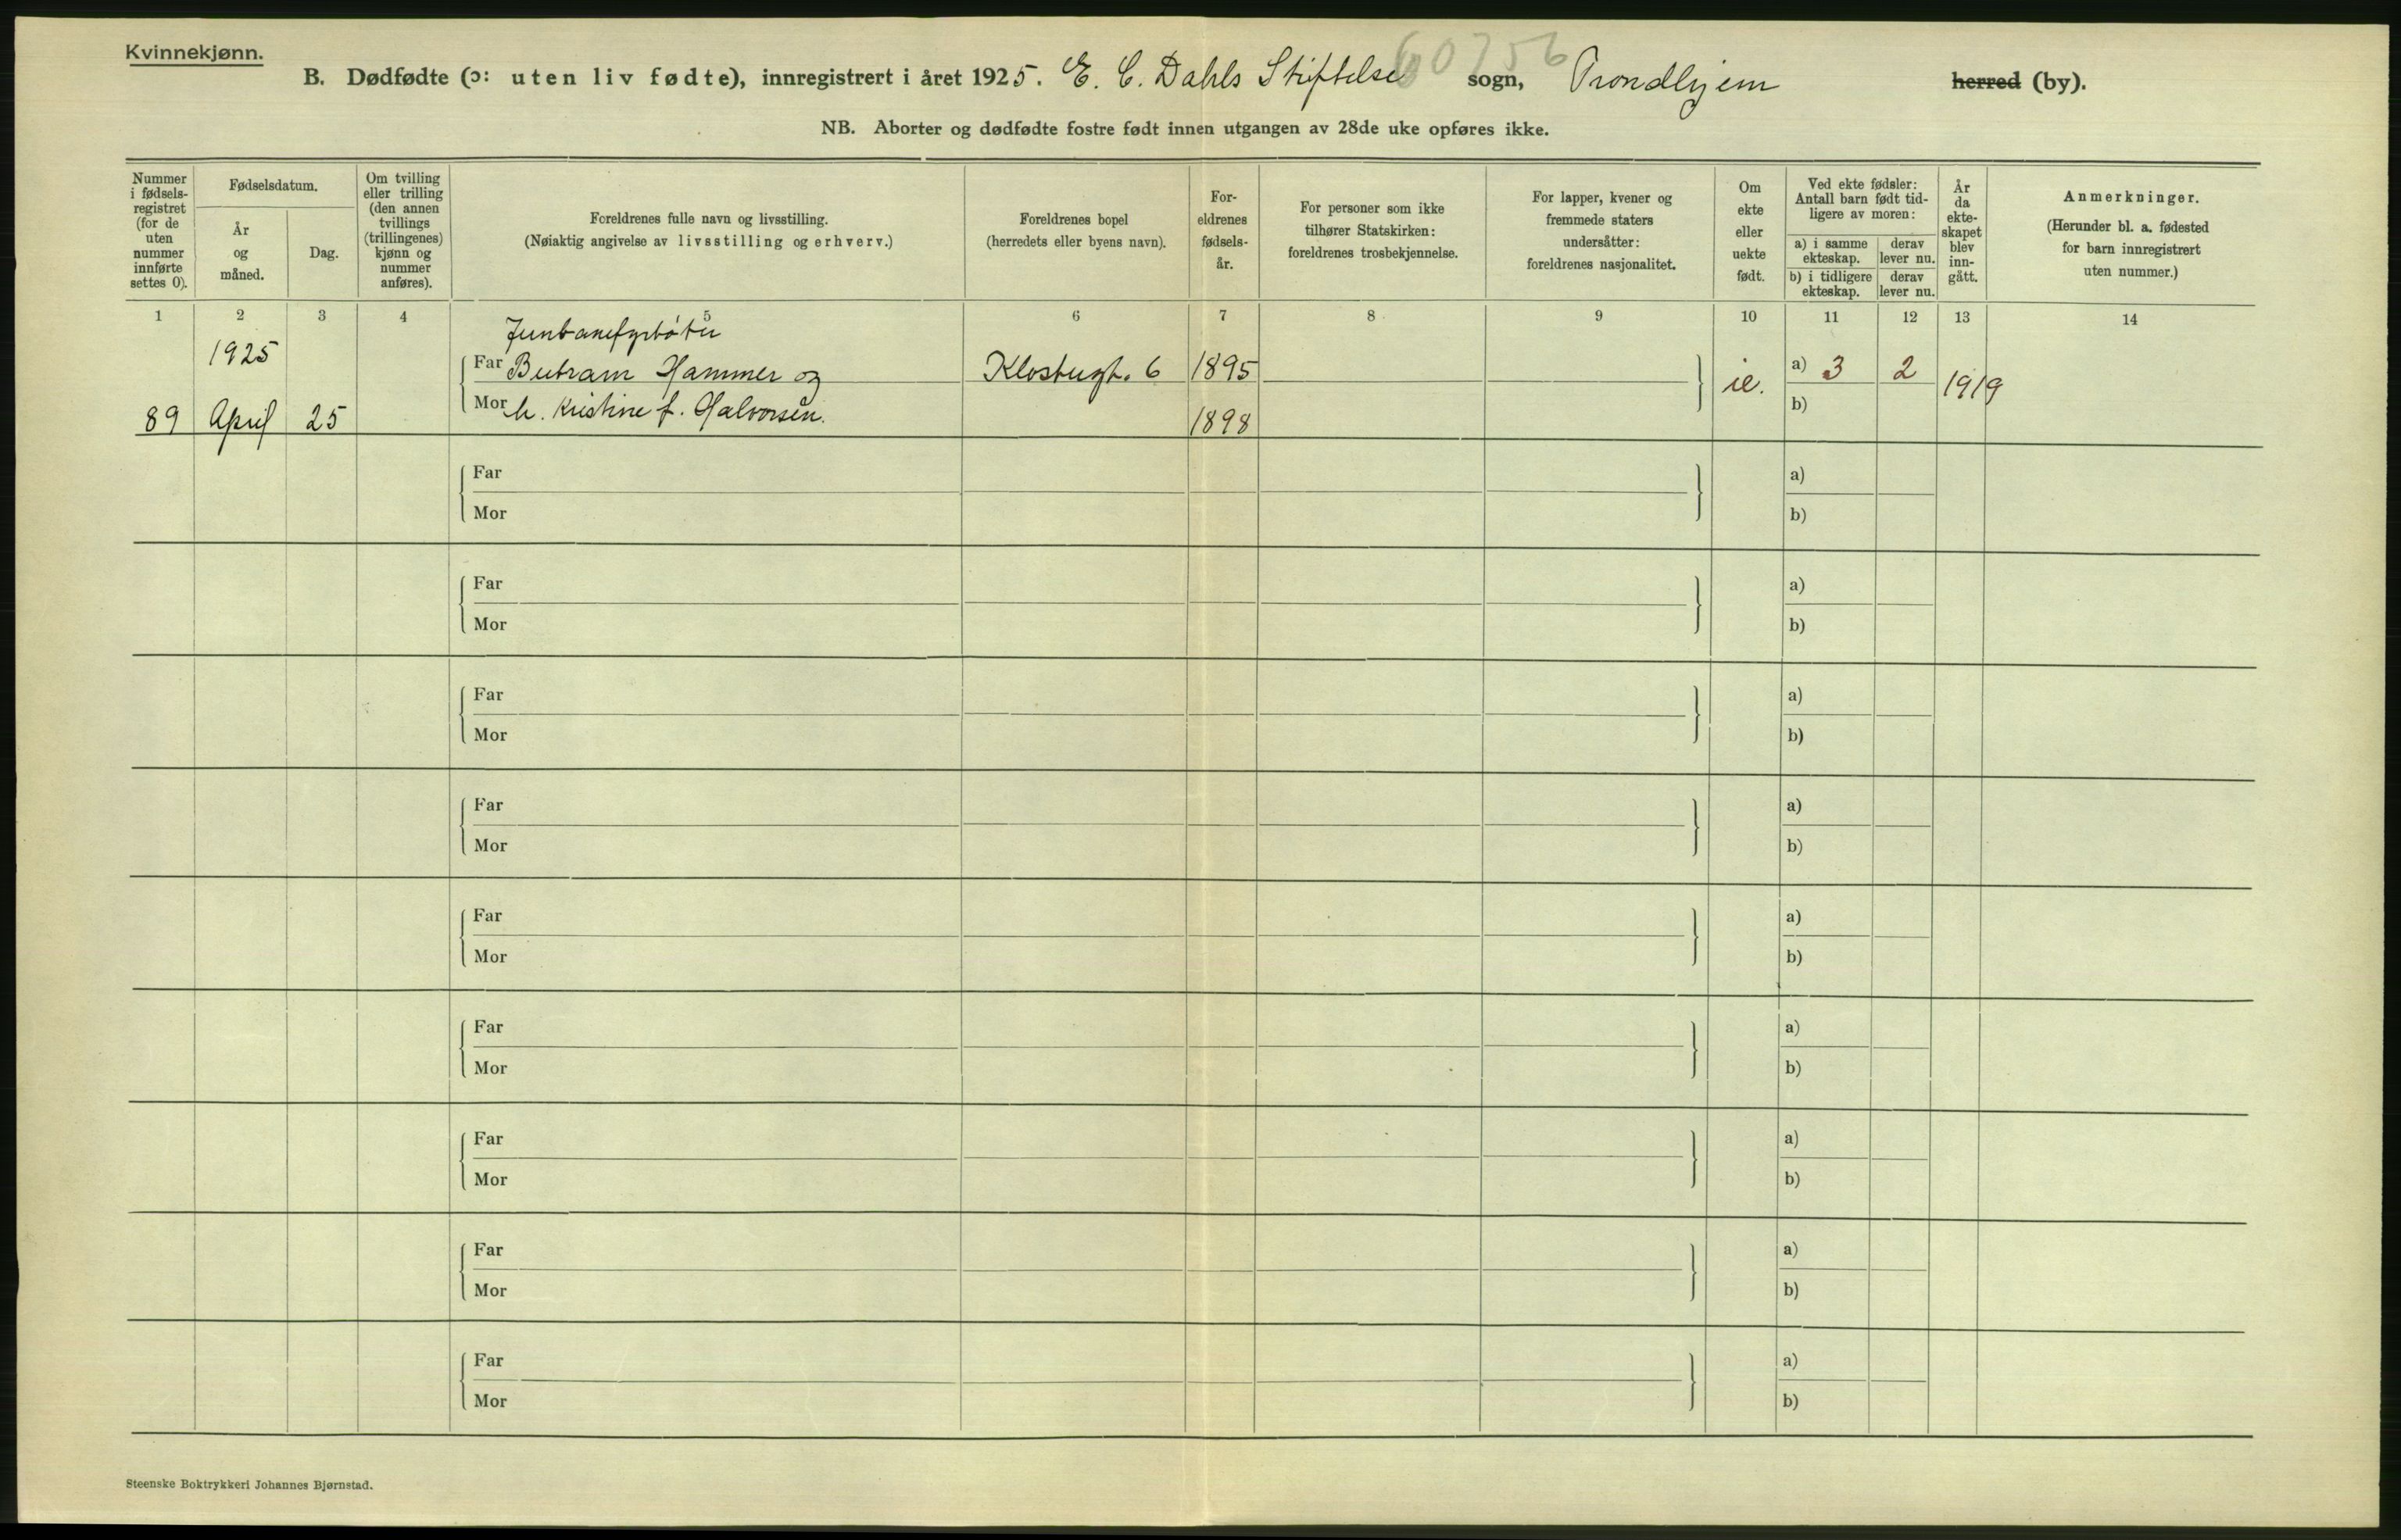 Kvinnekjønn.
B. Dødfødte (ɔ: uten liv fødte), innregistrert i året 1925. E. C. Dahls Stiftelse sogn, Trondhjem herred (by).
60756
NB. Aborter og dødfødte fostre født innen utgangen av 28de uke opføres ikke.
Nummer i fødsels-registret (for de uten nummer innførte settes 0).
Fødselsdatum.
År og måned.
Dag.
Om tvilling eller trilling (den annen tvillings (trillingenes) kjønn og nummer anføres).
Foreldrenes fulle navn og livsstilling.
(Nøiaktig angivelse av livsstilling og erhverv.)
Foreldrenes bopel
(herredets eller byens navn).
For-eldrenes fødsels-år.
For personer som ikke tilhører Statskirken: foreldrenes trosbekjennelse.
For lapper, kvener og fremmede staters undersåtter: foreldrenes nasjonalitet.
Om ekte eller uekte født.
Ved ekte fødsler: Antall barn født tid-ligere av moren:
a) i samme ekteskap.
derav lever nu.
b) i tidligere ekteskap.
derav lever nu.
År da ekte-skapet blev inn-gått.
Anmerkninger.
(Herunder bl. a. fødested for barn innregistrert uten nummer.)
1 2 3 4 5 6 7 8 9 10 11 12 13 14
Jernbanefyrbøter
1925
Far Bertram Hammer og Klostergt. 6 1895
ie. a) 3 2 1919
89 April 25
Mor h. Kristine f. Halvorsen. 1898
b)
Far a)
Mor b)
Far a)
Mor b)
Far a)
Mor b)
Far a)
Mor b)
Far a)
Mor b)
Far a)
Mor b)
Far a)
Mor b)
Far a)
Mor b)
Far a)
Mor b)
Steenske Boktrykkeri Johannes Bjørnstad.